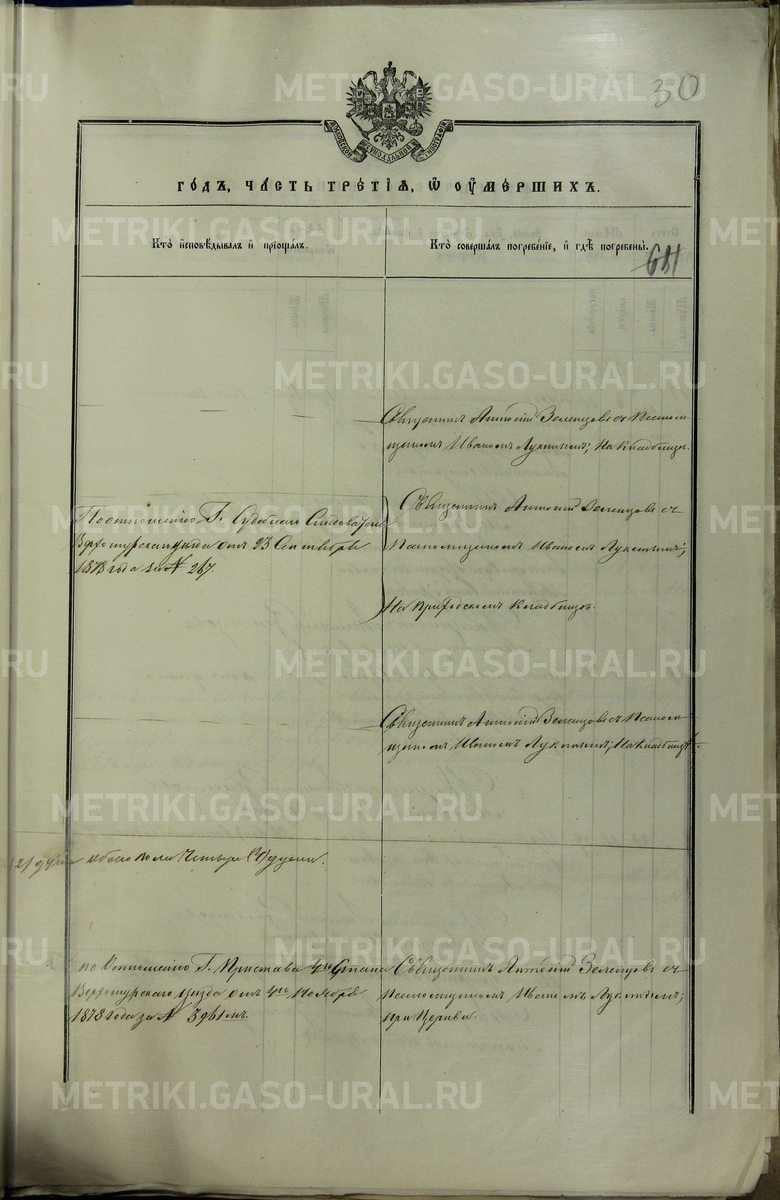 30
ГОДЪ, ЧАСТЬ ТРЕТІѦ, Ѡ ОУМЕРШИХЪ.
Кто̀ и҆сповѣ́дывалъ и҆ прїѡбща́лъ.
Кто̀ соверша́лъ погребе́нїе, и҆ гдѣ̀ погребены̀.
641
Священникъ Антоній Зеленцовъ съ Псаломщикомъ Иваномъ
На Кладбищѣ.
По отношенію Г. Судебнаго Слѣдователя
Верхотурскаго уѣзда отъ 23 Сентября
1878 года за № 267.
Священникъ Антоній Зеленцовъ съ
Псаломщикомъ Иваномъ
На приходскомъ кладбищѣ.
Священникъ Антоній Зеленцовъ съ Псалом-
щикомъ Иваномъ На Кладбищѣ.
обоего пола Четыре (4) души.
по Отношенію Г. Пристава 4го Стана
Верхотурскаго уѣзда отъ 4го Ноября
1878 года за №
Священникъ Антоній Зеленцовъ съ
Псаломщикомъ Иваномъ
при Церкви.
METRIKI.GASO-URAL.RU